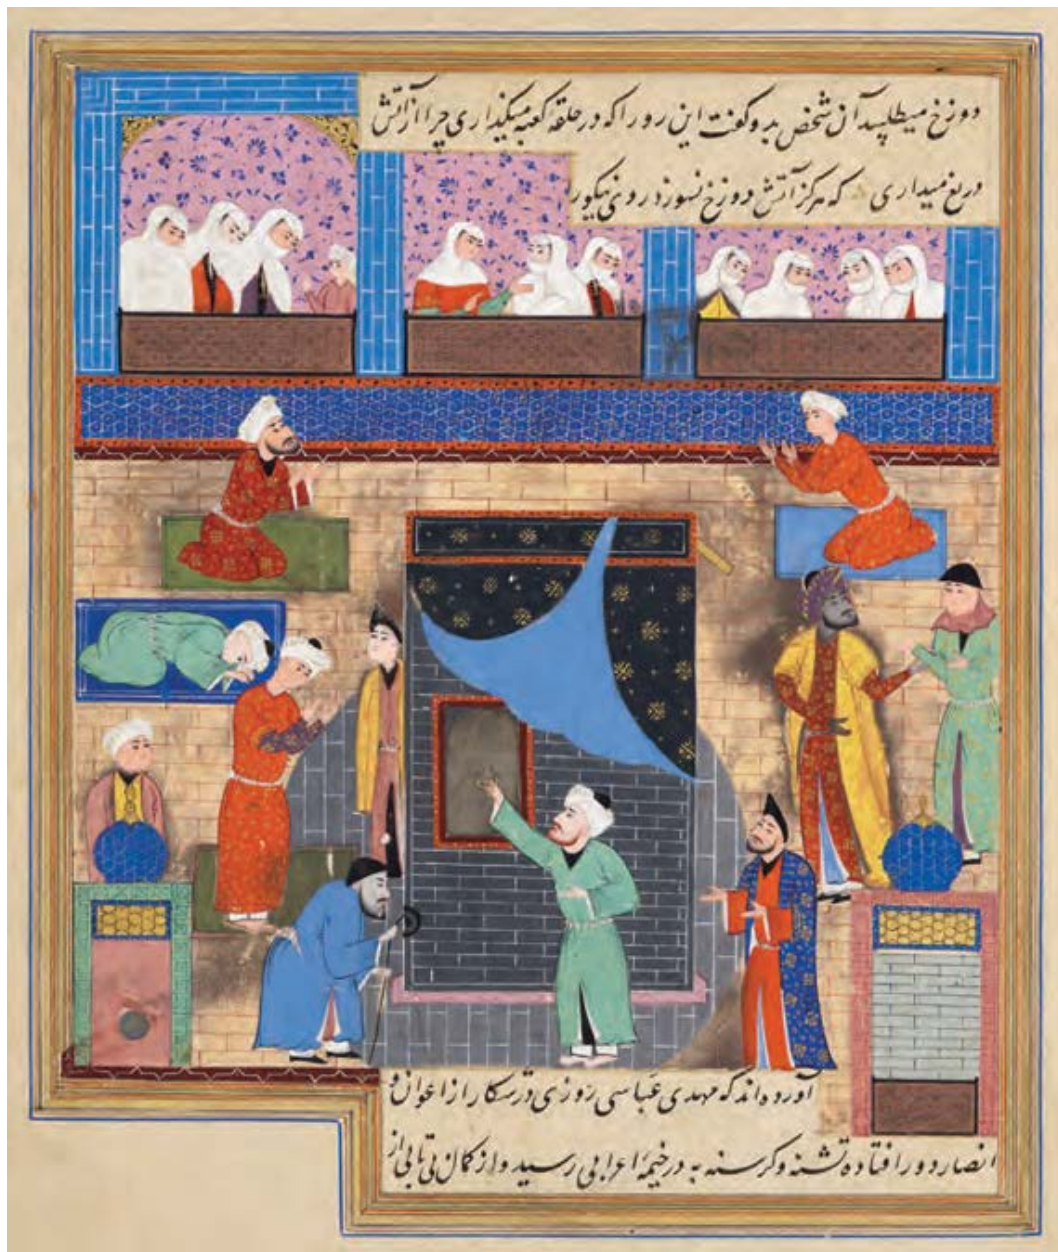 دوزخ میطلبید آن شخص بدو گفت این رو را که در حلقه کعبه میگذاری چرا از آتش
دریغ میداری که هرگز آتش دوزخ نسوزد روی نیکور
آورده‌اند که مهدی عباسی روزی در شکار از اعوان و
انصار دور افتاده تشنه و گرسنه به در خیمهٔ اعرابی رسید و از کمال بی تابی از